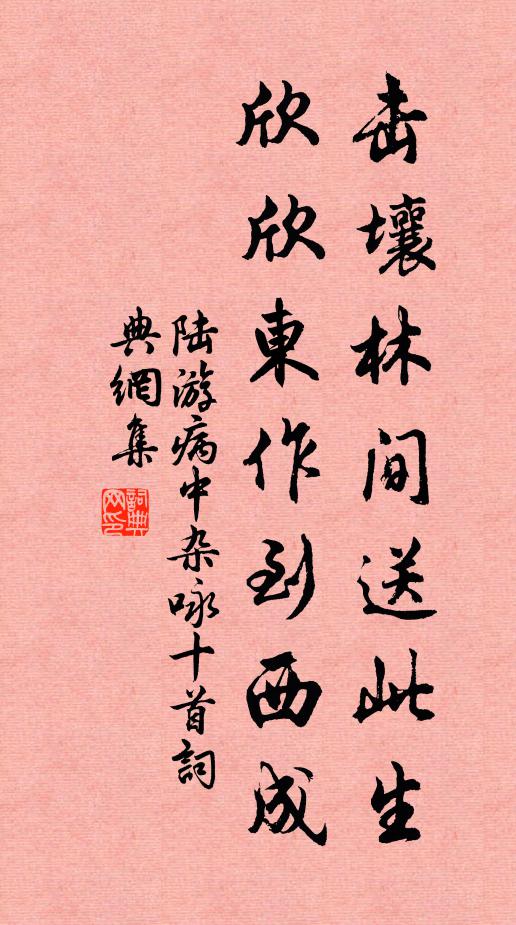 击壤林间送此生
欣欣東作到西成
陆游病中杂咏十首詞
典網集
詞典
网印